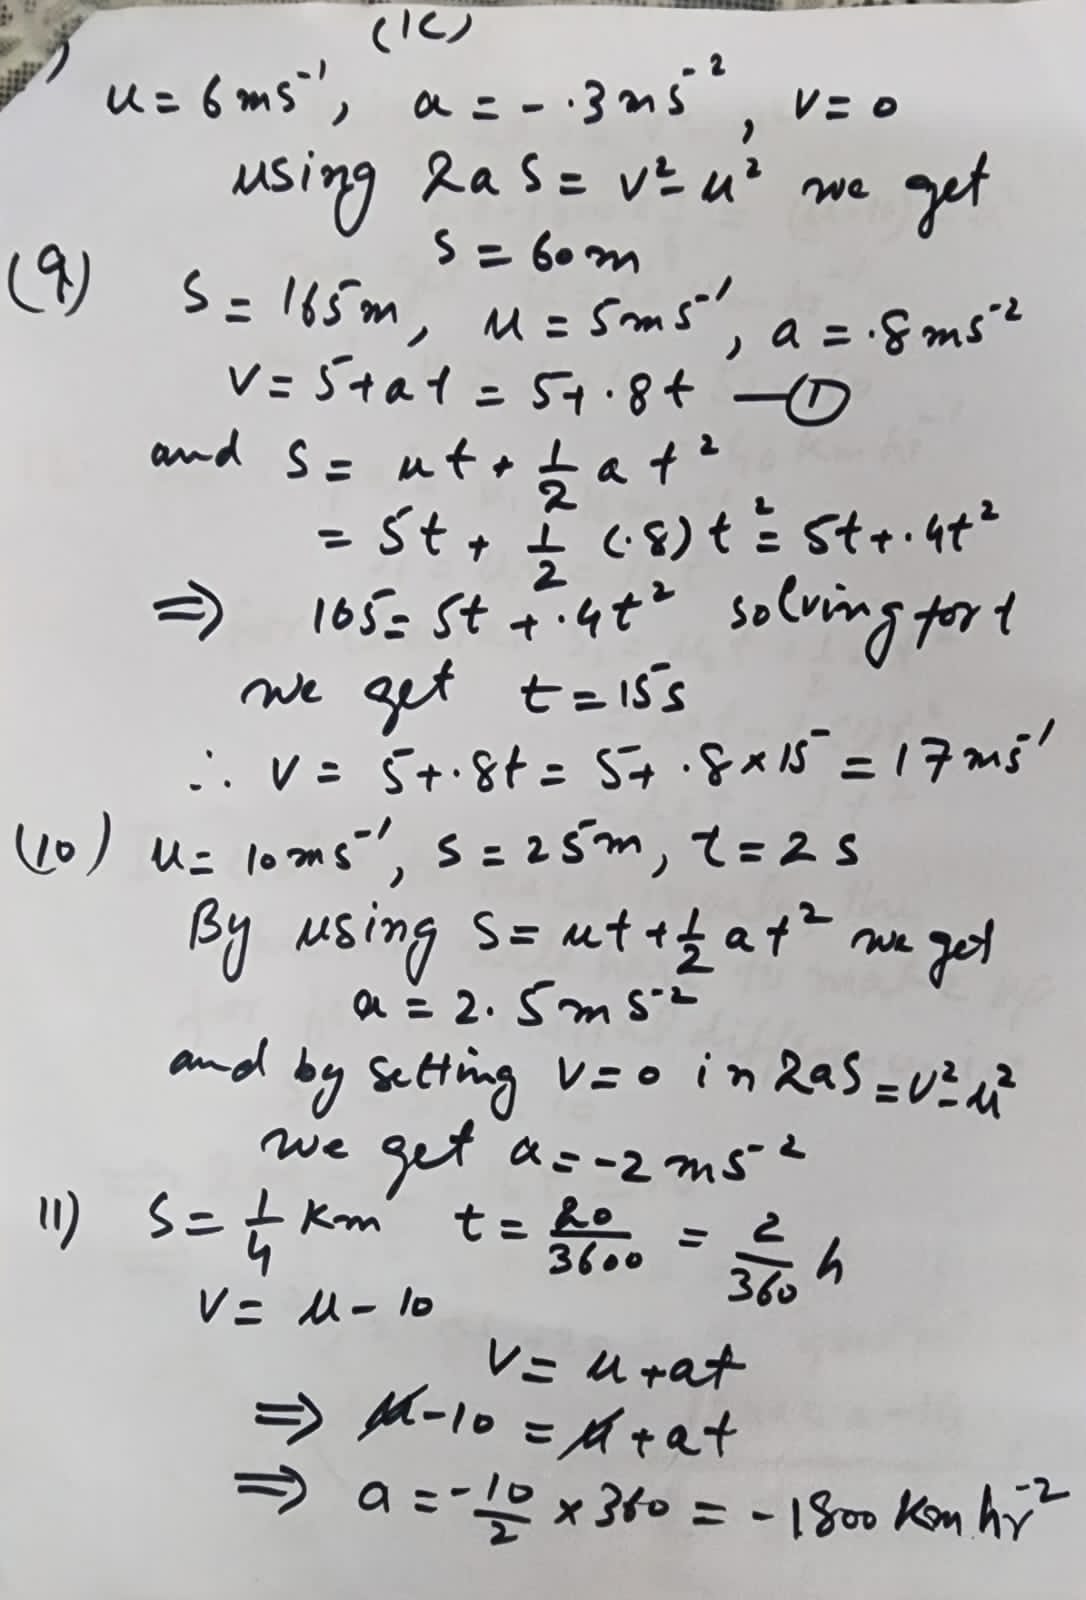 (1C)
)
u = 6 ms⁻¹, a = - .3 ms⁻², v = 0
using 2aS = v² - u² we get
S = 60 m
(9) S = 165 m, u = 5 ms⁻¹, a = .8 ms⁻²
v = 5 + at = 5 + .8t —①
and S = ut + 1/2 at²
= 5t + 1/2 (.8)t² = 5t + .4t²
⇒ 165 = 5t + .4t² solving for t
we get t = 15 s
∴ v = 5 + .8t = 5 + .8 × 15 = 17 ms⁻¹
(10) u = 10 ms⁻¹, s = 25 m, t = 2 s
By using S = ut + 1/2 at² we get
a = 2.5 ms⁻²
and by setting v = 0 in 2aS = v² - u²
we get a = -2 ms⁻²
11) S = 1/4 Km t = 20/3600 = 2/360 h
v = u - 10
v = u + at
⇒ u - 10 = u + at
⇒ a = -10/2 × 360 = -1800 Km hr⁻²